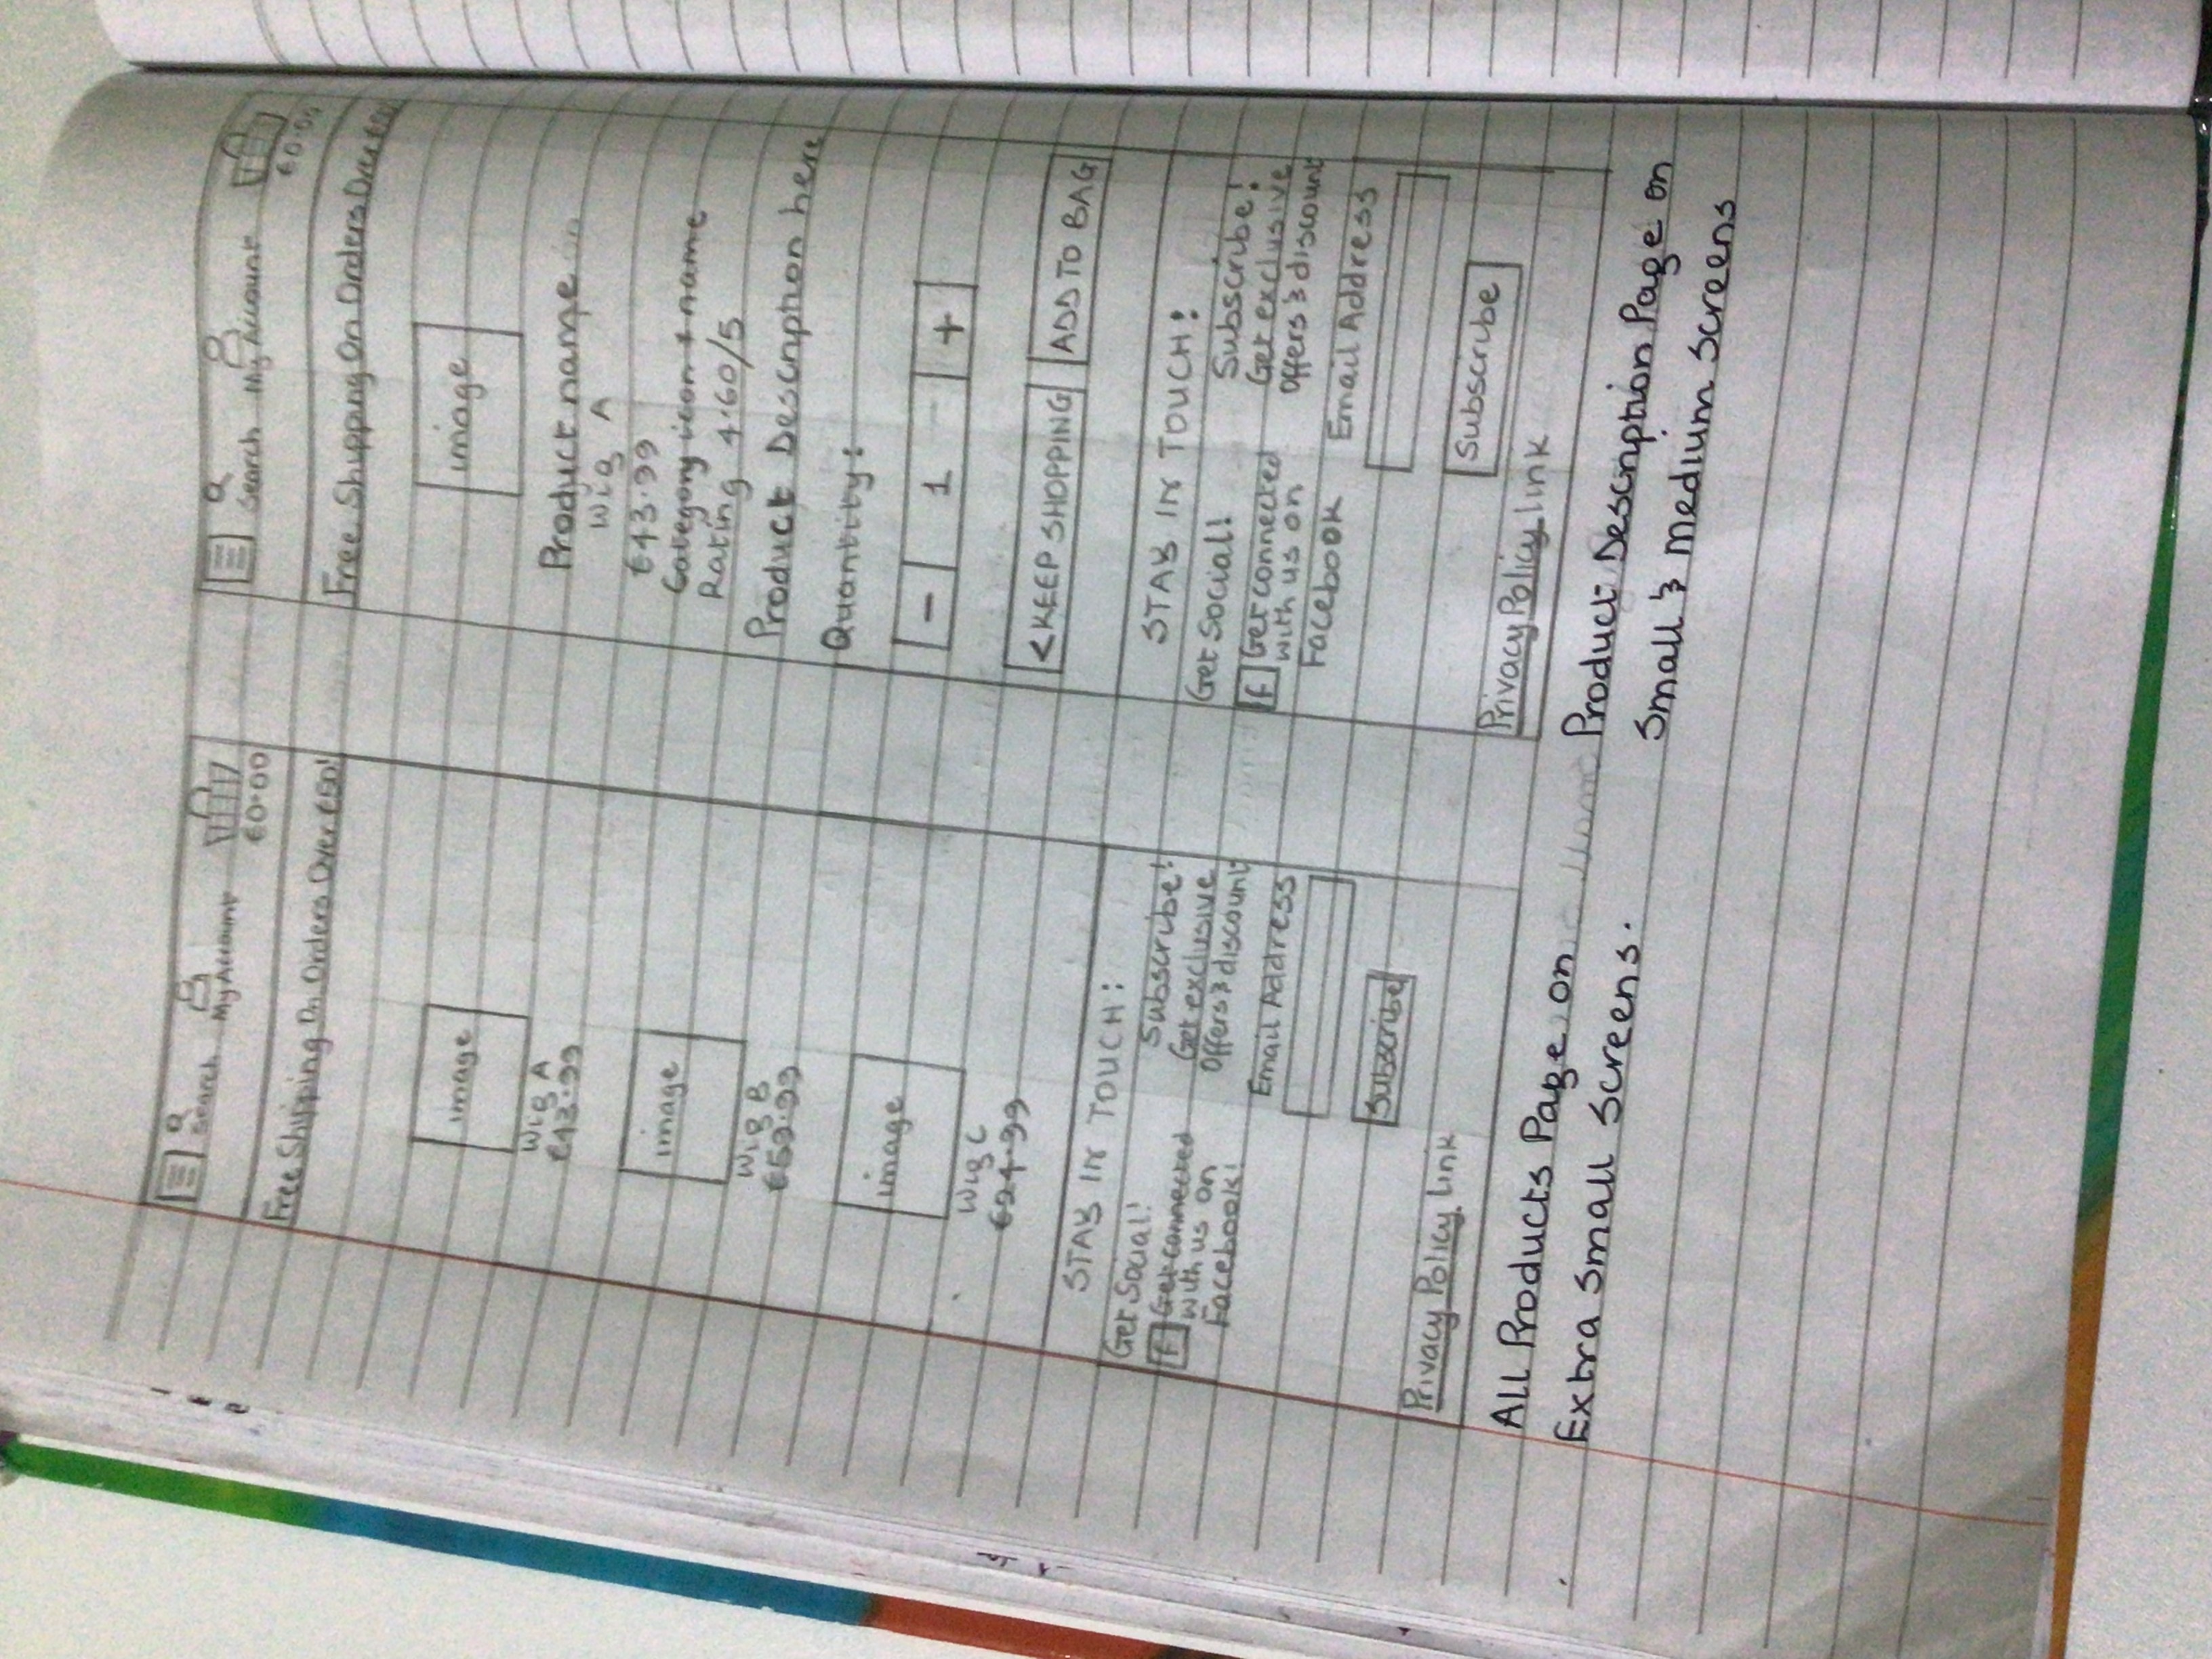 Search My Account
€0.00
Free Shipping On Orders Over €50!
image
Wig A
€43.99
image
Wig B
image
Wig C
STAY IN TOUCH:
Get Social! Subscribe!
f Get connected Get exclusive
with us on Offers & discount
Facebook!
Email Address
Subscribe
Privacy Policy Link
All Products Page on
Extra Small Screens.
Search My Account
€0.00
Free Shipping On Orders Over €50
image
Product name
Wig A
€43.99
Category icon & name
Rating 4.60/5
Product Description here
Quantity:
- 1 +
< KEEP SHOPPING ADD TO BAG
STAY IN TOUCH:
Get Social! Subscribe!
f Get connected Get exclusive
with us on Offers & discount
Facebook
Email Address
Subscribe
Privacy Policy Link
Product Description Page on
Small & Medium Screens